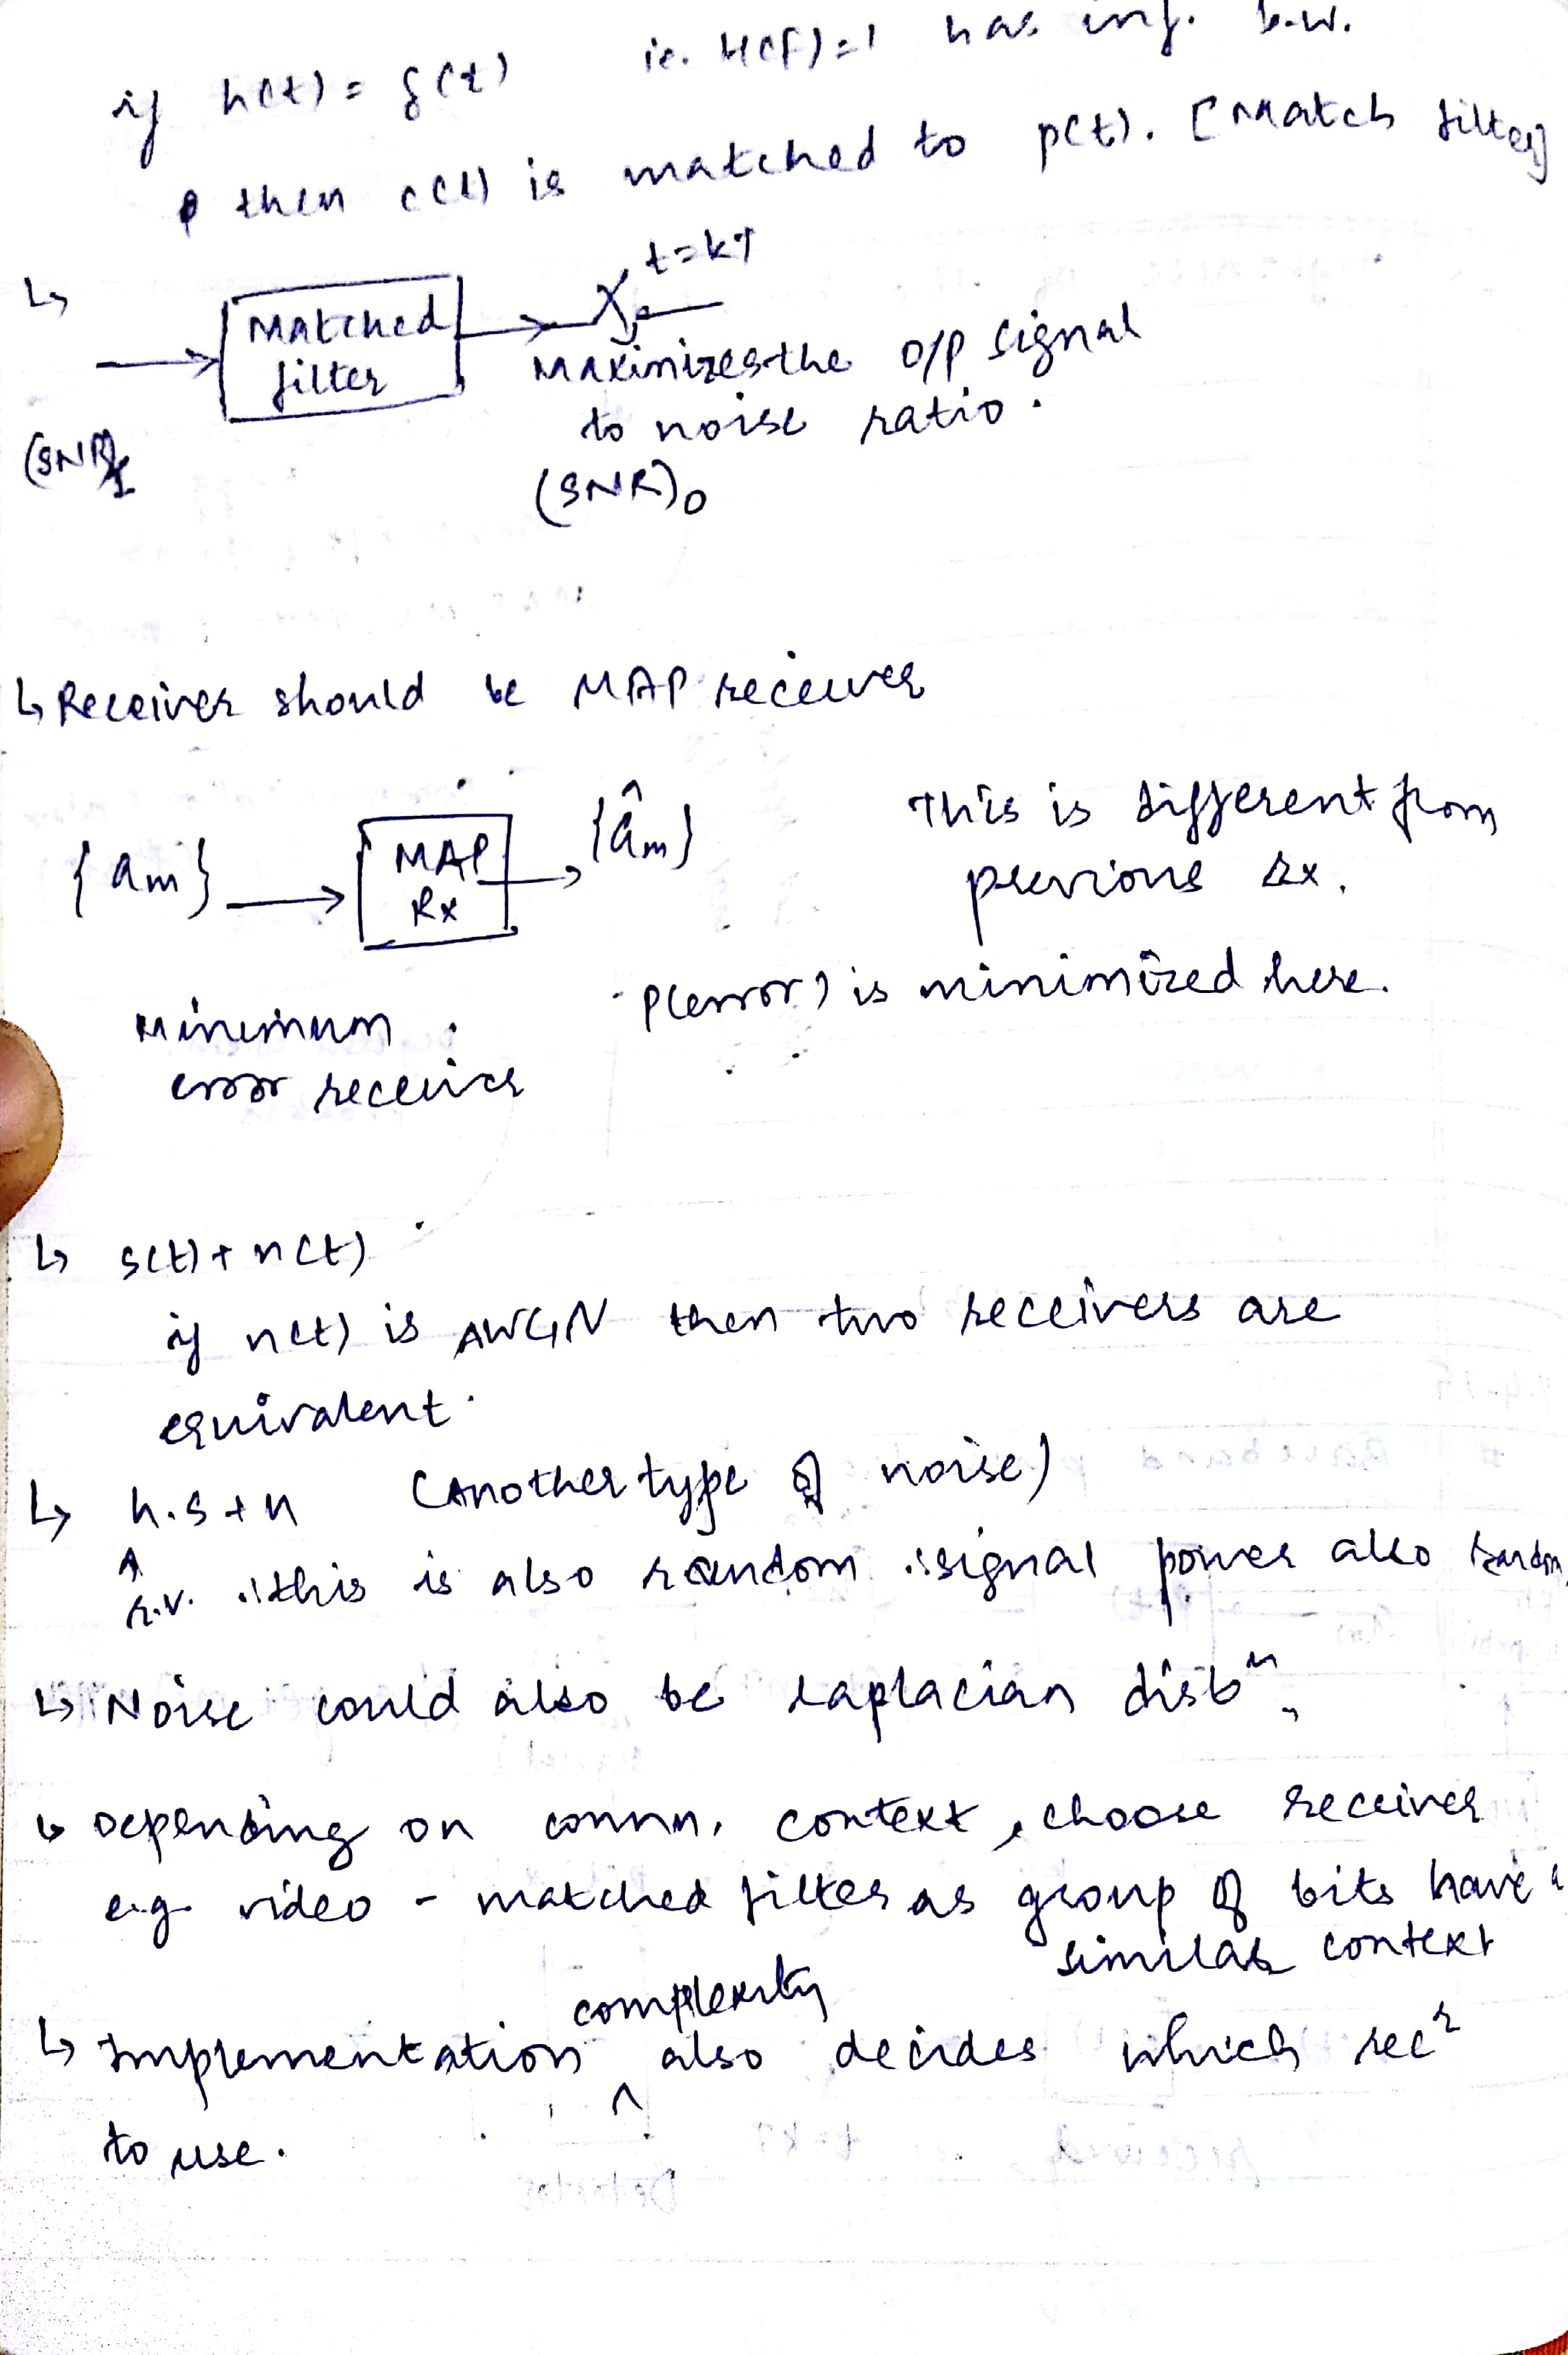 if h(t) = δ(t) ie. H(f)=1 has inf. b.w.
then c(t) is matched to p(t). [Match filter]
↳ Matched filter
t=kT
Maximizes the o/p signal
to noise ratio.
(SNR)I
(SNR)O
↳ Receiver should be MAP receiver
{am} → MAP Rx → {âm}
This is different from
previous Rx.
Minimum
error receiver
P(error) is minimized here.
↳ s(t) + n(t)
if n(t) is AWGN then two receivers are
equivalent.
↳ h.s + n (Another type of noise)
↑
r.v. ∴ this is also random ∴ signal power also random
↳ Noise could also be laplacian disbⁿ.
↳ Depending on commn. context, choose receiver
e.g. video - matched filter as group of bits have
similar context
complexity
↳ Implementation ^ also decides which recʳ
to use.